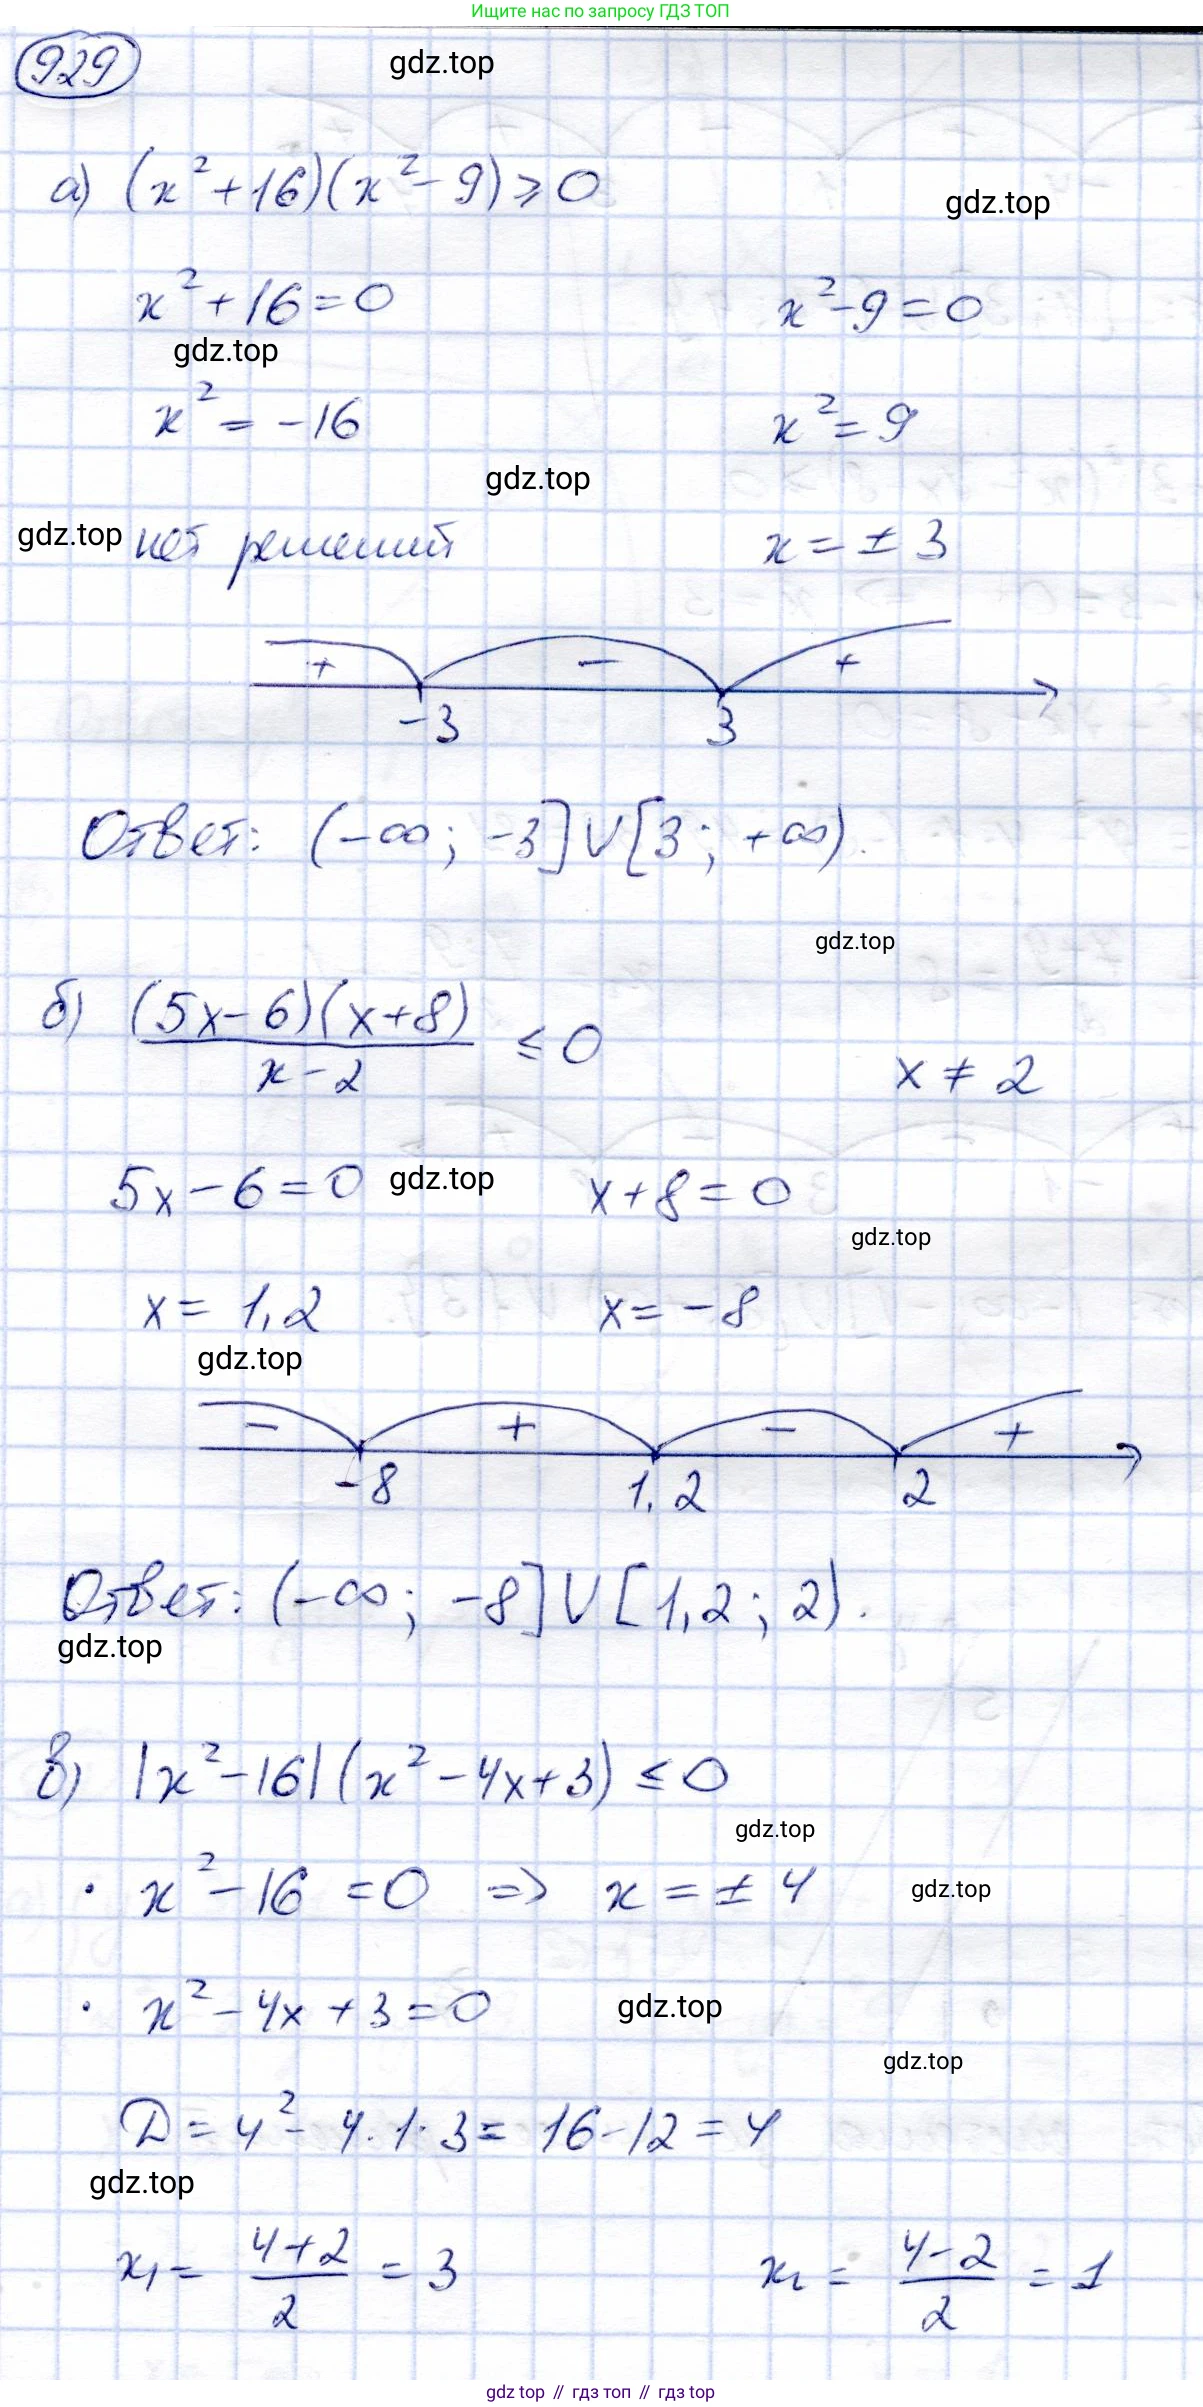 Ищите нас по запросу ГДЗ ТОП
929
gdz.top
а) (x²+16)(x²-9)≥0
gdz.top
x²+16=0 x²-9=0
gdz.top
x²=-16 x²=9
gdz.top
gdz.top нет решений x=±3
+ - +
-3 3
Ответ: (-∞; -3]∪[3; +∞).
gdz.top
б) (5x-6)(x+8)
≤0
x-2 x≠2
5x-6=0 gdz.top x+8=0
gdz.top
x=1,2 x=-8
gdz.top
- + - +
-8 1,2 2
Ответ: (-∞; -8]∪[1,2; 2).
gdz.top
в) |x²-16|(x²-4x+3)≤0
gdz.top
· x²-16=0 => x=±4 gdz.top
· x²-4x+3=0 gdz.top
gdz.top
D=4²-4·1·3=16-12=4
gdz.top
x₁=(4+2)/2=3 x₂=(4-2)/2=1
gdz top // гдз топ // гдз top